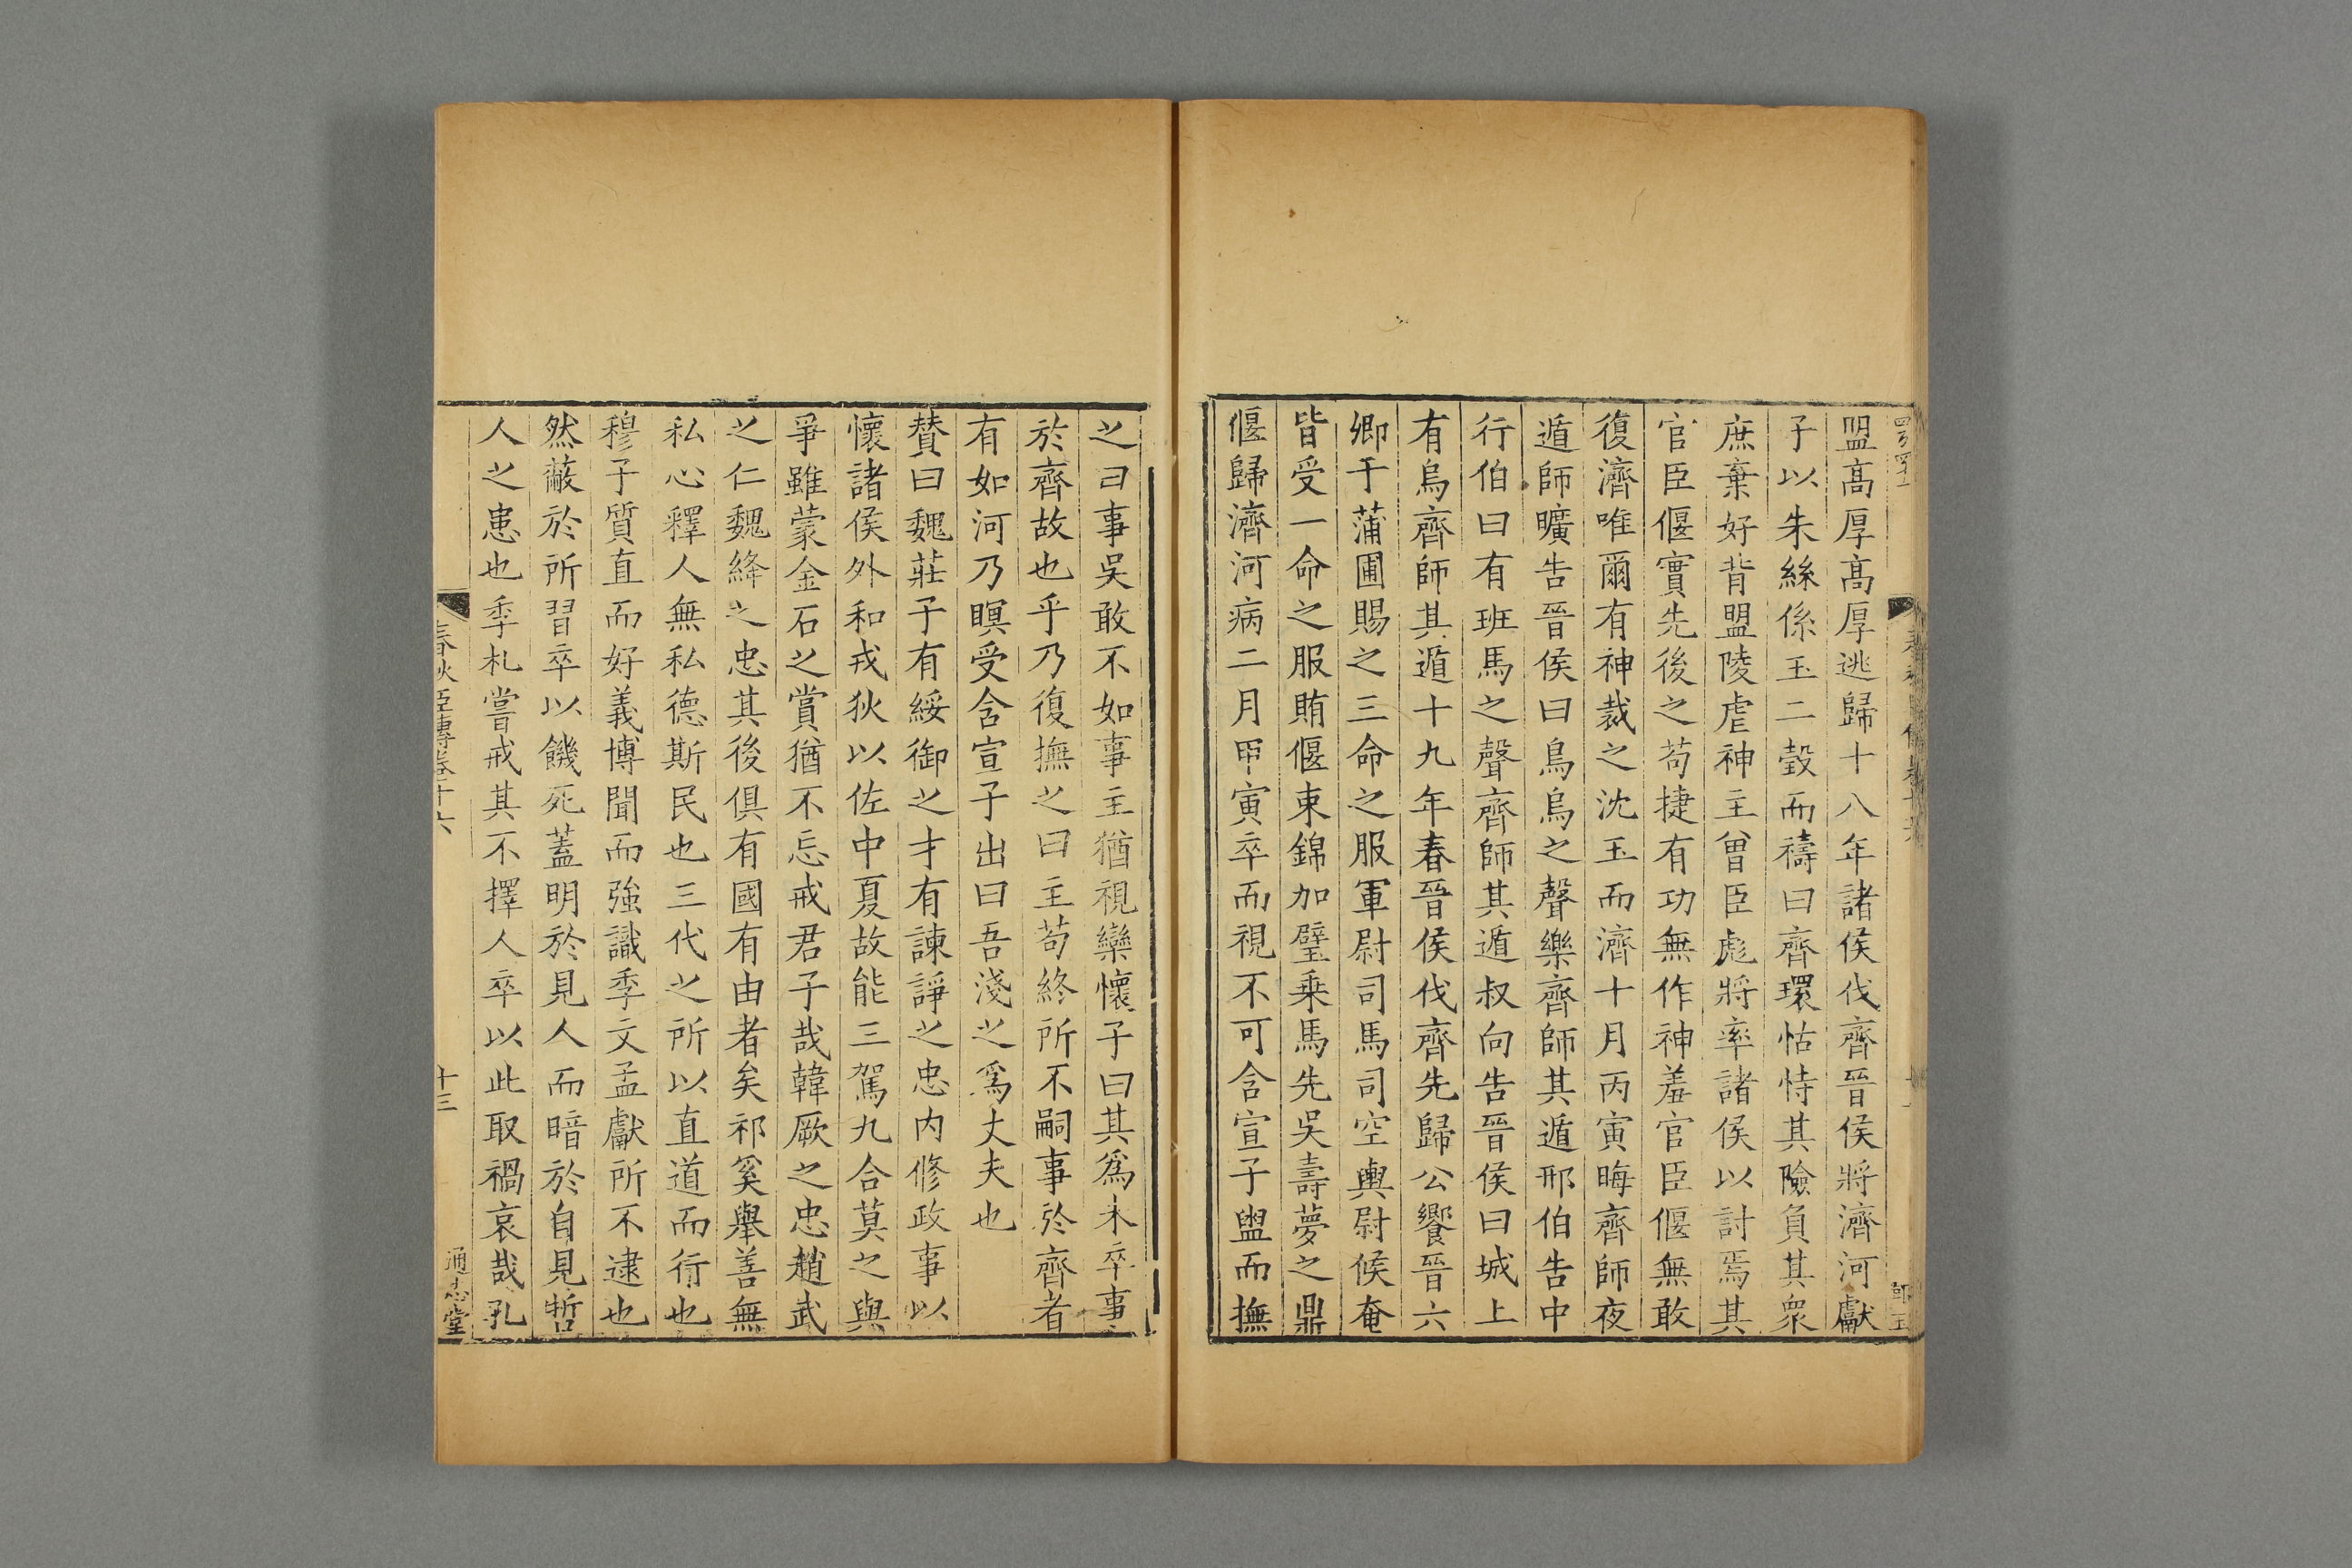 盟高厚高厚逃歸十八年諸侯伐齊晉侯將濟河獻
子以朱絲係玉二瑴而禱曰齊環怙恃其險負其衆
庶棄好背盟陵虐神主曾臣彪將率諸侯以討焉其
官臣偃實先後之苟捷有功無作神羞官臣偃無敢
復濟唯爾有神裁之沈玉而濟十月丙寅晦齊師夜
遁師曠告晉侯曰鳥烏之聲樂齊師其遁邢伯告中
行伯曰有班馬之聲齊師其遁叔向告晉侯曰城上
有烏齊師其遁十九年春晉侯伐齊先歸公饗晉六
卿于蒲圃賜之三命之服軍尉司馬司空輿尉候奄
皆受一命之服賄偃束錦加璧乘馬先吳壽夢之鼎
偃歸濟河病二月甲寅卒而視不可含宣子盥而撫
之曰事吳敢不如事主猶視欒懷子曰其爲未卒事
於齊故也乎乃復撫之曰主苟終所不嗣事於齊者
有如河乃瞑受含宣子出曰吾淺之爲丈夫也
贊曰魏莊子有綏御之才有諫諍之忠內修政事以
懷諸侯外和戎狄以佐中夏故能三駕九合莫之與
爭雖蒙金石之賞猶不忘戒君子哉韓厥之忠趙武
之仁魏絳之忠其後俱有國有由者矣祁奚舉善無
私心釋人無私德斯民也三代之所以直道而行也
穆子質直而好義博聞而強識季文孟獻所不逮也
然蔽於所習卒以饑死蓋明於見人而暗於自見哲
人之患也季札嘗戒其不擇人卒以此取禍哀哉孔
春秋臣傳卷十六
十三
通志堂